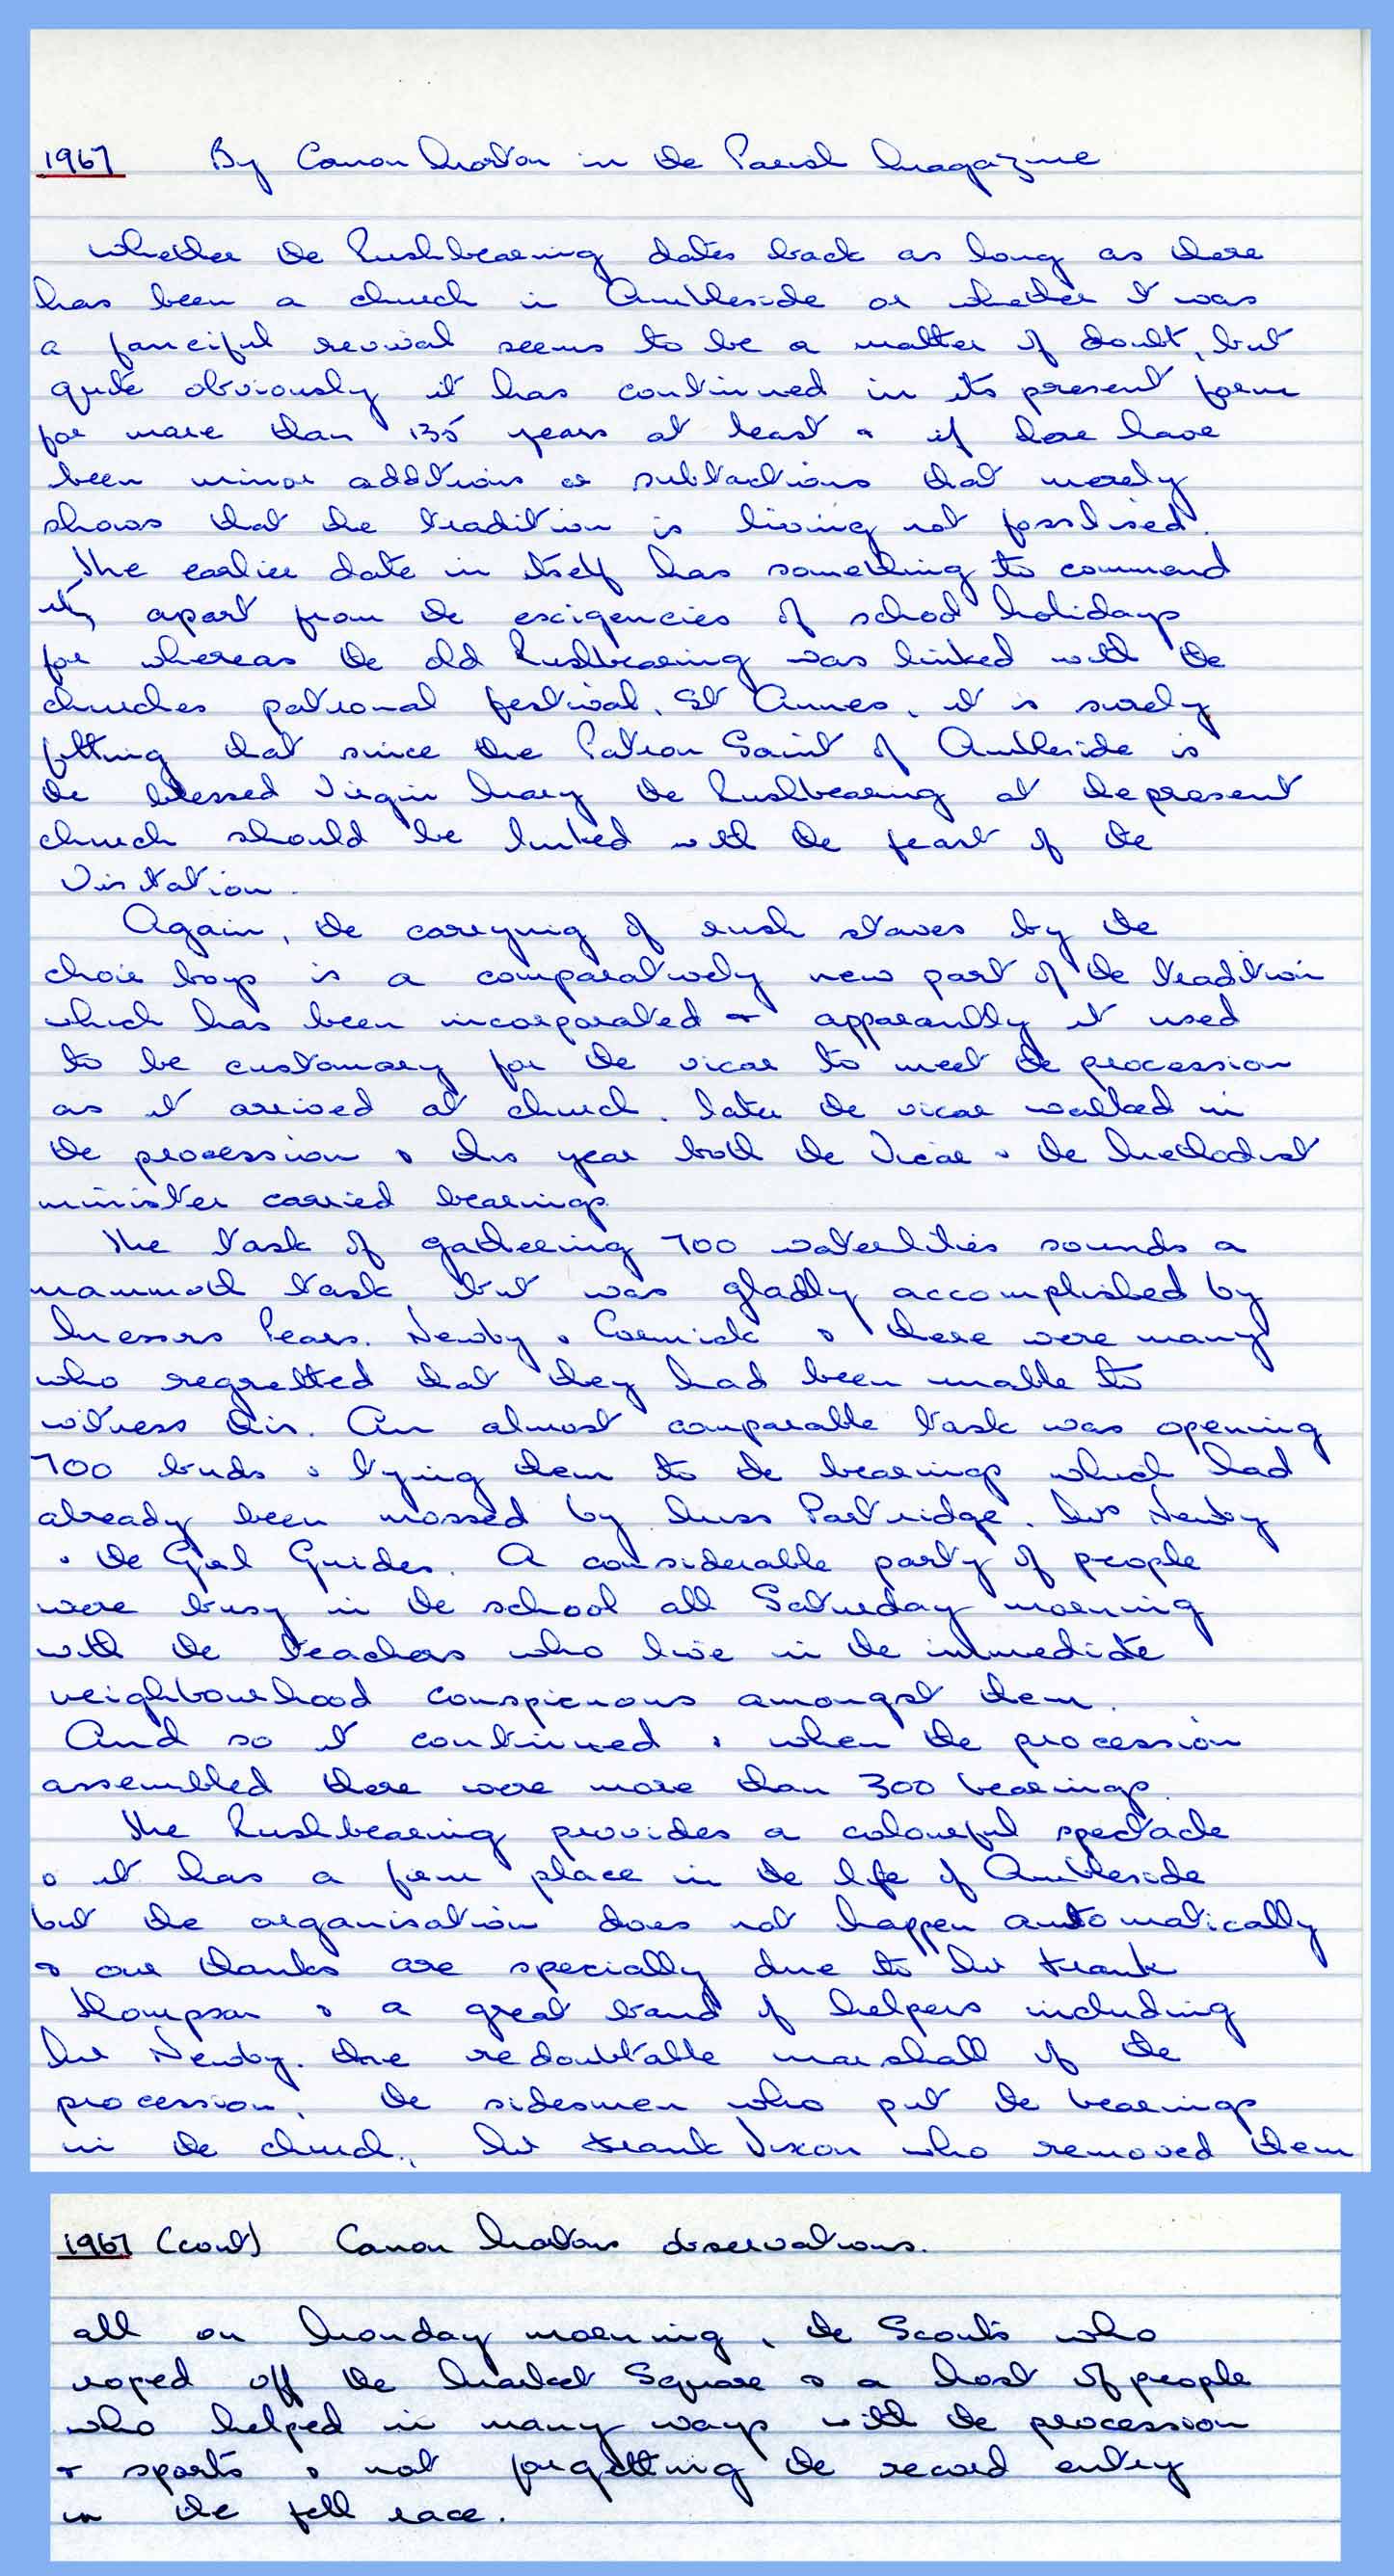 1967 By Canon Morton in the Parish Magazine
Whether the Rushbearing dates back as long as there
has been a church in Ambleside or whether it was
a fanciful revival seems to be a matter of doubt, but
quite obviously it has continued in its present form
for more than 135 years at least & if there have
been minor additions or subtractions that merely
shows that the tradition is living not fossilised.
The earlier date in itself has something to commend
it, apart from the exigencies of school holidays
for whereas the old Rushbearing was linked with the
churches patronal festival, St Annes, it is surely
fitting that since the Patron Saint of Ambleside is
the blessed Virgin Mary the Rushbearing at the present
church should be linked with the feast of the
Visitation.
Again, the carrying of rush staves by the
choir boys is a comparatively new part of the tradition
which has been incorporated & apparantly it used
to be customary for the vicar to meet the procession
as it arrived at church. Later the vicar walked in
the procession & this year both the Vicar & the Methodist
minister carried bearings.
The task of gathering 700 waterlilies sounds a
mammoth task but was gladly accomplished by
Messrs Pears. Newby & Cormick & there were many
who regretted that they had been unable to
witness this. An almost comparable task was opening
700 buds & tying them to the bearings which had
already been mossed by Miss Partridge. Mrs Newby
& the Girl Guides. A considerable party of people
were busy in the school all Saturday morning
with the teachers who live in the immediate
neighbourhood conspicuous amongst them.
And so it continued & when the procession
assembled there were more than 300 bearings.
The Rushbearing provides a colourful spectacle
& it has a firm place in the life of Ambleside
but the organisation does not happen automatically
& our thanks are specially due to Mr Frank
Thompson & a great band of helpers including
Mr Newby. the redoubtable marshall of the
procession, the sidesmen who put the bearings
in the church, Mr Frank Dixon who removed them
1967 (cont) Canon Mortons observations.
all on Monday morning, the Scouts who
roped off the Market Square & a host of people
who helped in many ways with the procession
& sports & not forgetting the record entry
in the fell race.